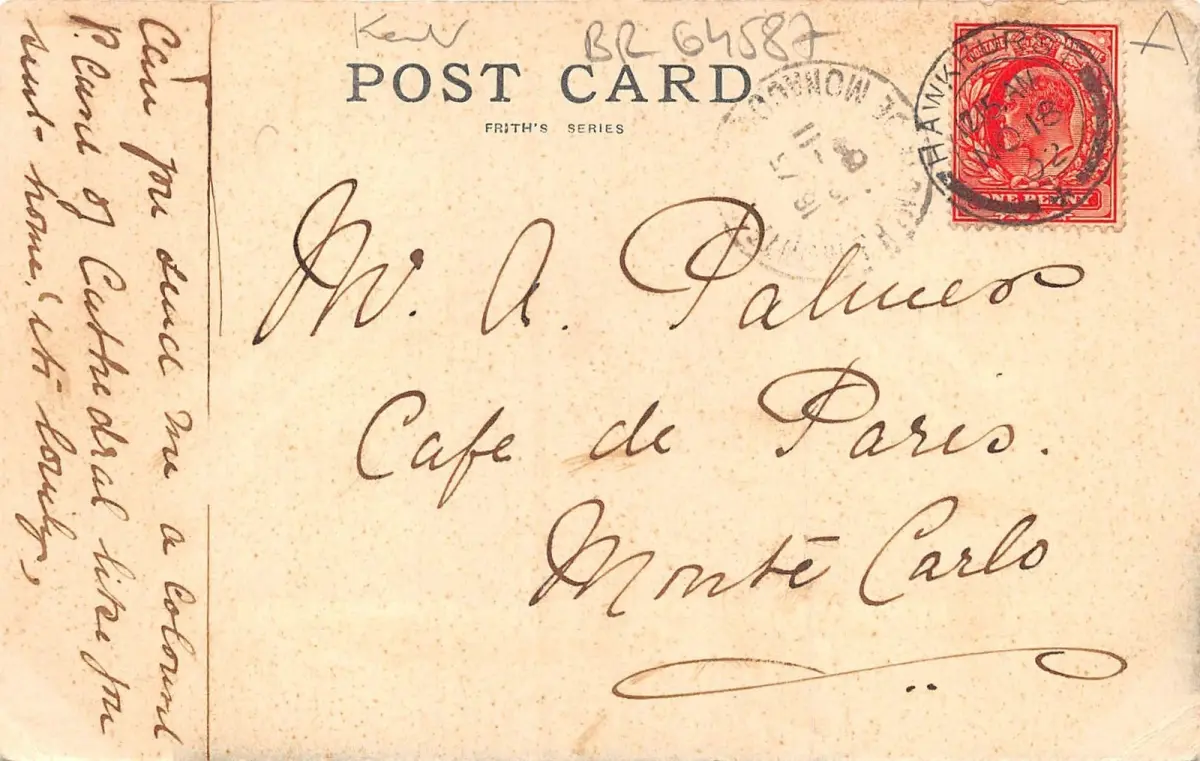 Kent
BR 64587
A
POST CARD
FRITH'S SERIES
HAWKHURST
AM
NO 18
02
ONE PENNY
Mr. A. Palmer
Cafe de Paris.
Monte Carlo
Can you send me a coloured
P. Card of Cathedral like you
sent home, its lovely,